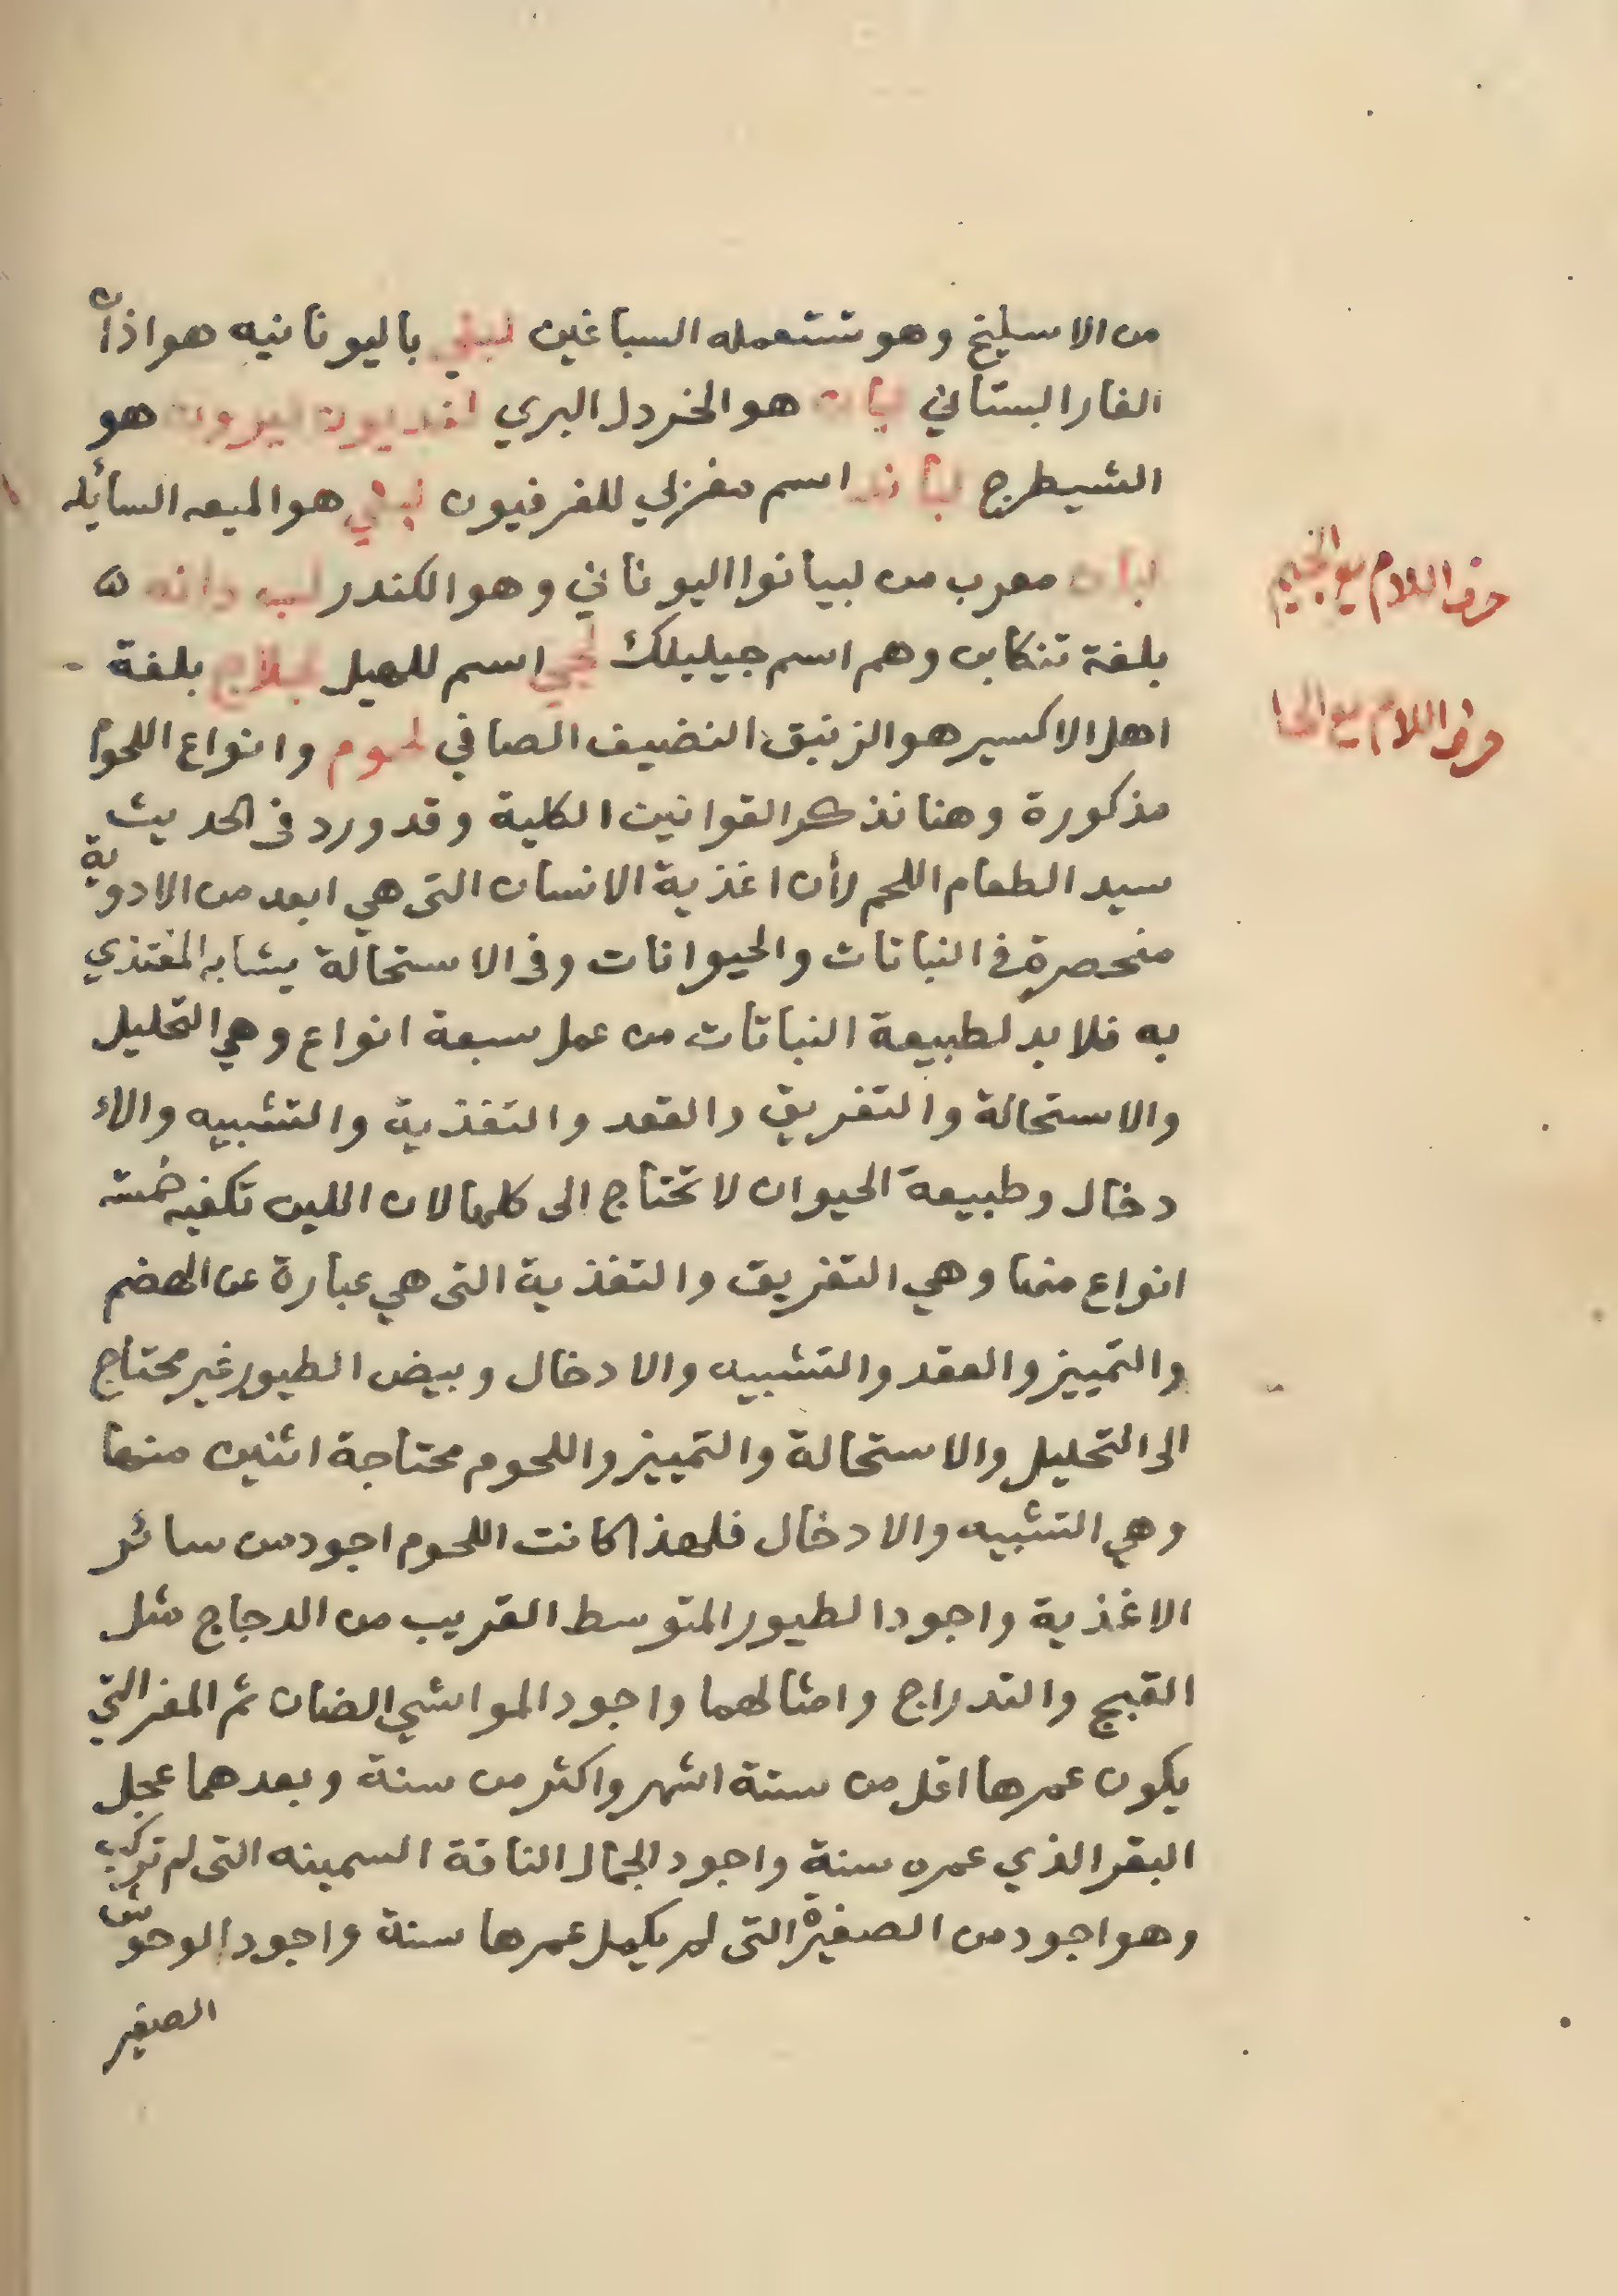 من الاسليخ وهو تستعمله السباغين لبني باليونانيه هو اذان
الفار البستاني لبان هو الخردل البري هو
الشيطرج اسم مغربي للفرفيون لبني هو الميعه السائله
لبان معرب من ليبانوا اليوناني وهو الكندر لب دانه ه
بلغة تنكابن وهم اسم جيليلك لجي اسم للهيل لجلاج بلغة
اهل الاكسير هو الزئبق النضيف الصافي لحوم وانواع اللحوم
مذكورة وهنا نذكر القوانين الكلية وقد ورد في الحديث
سيد الطعام اللحم لأن اغذية الانسان التى هي ابعد من الادوية
منحصرة في النباتات والحيوانات وفى الاستحالة يشابه المغتذي
به فلا بد لطبيعة النباتات من عمل سبعة انواع وهي التحليل
والاستحالة والتفريق والعقد والتغذية والتشبيه والا
دخال وطبيعة الحيوان لا تحتاج الى كلها لان اللبن تكفيه خمسة
انواع منها وهي التفريق والتغذية التى هي عبارة عن الهضم
والتمييز والعقد والتشبيه والادخال وبيض الطيور غير محتاج
الى التحليل والاستحالة والتمييز واللحوم محتاجة اثنين منها
وهي التشبيه والادخال فلهذا كانت اللحوم اجود من سائر
الاغذية واجود الطيور المتوسط القريب من الدجاج مثل
القبج والتدراج وامثالهما واجود المواشي الضان ثم المعز التي
يكون عمرها اقل من ستة اشهر واكثر من سنة وبعدهما عجل
البقر الذي عمره سنة واجود الجمال الناقة السمينه التى لم تركب
وهو اجود من الصغيرة التى لم يكمل عمرها سنة واجود الوحوش
الصغير
حرف اللام مع الجيم
حرف اللام مع الحا